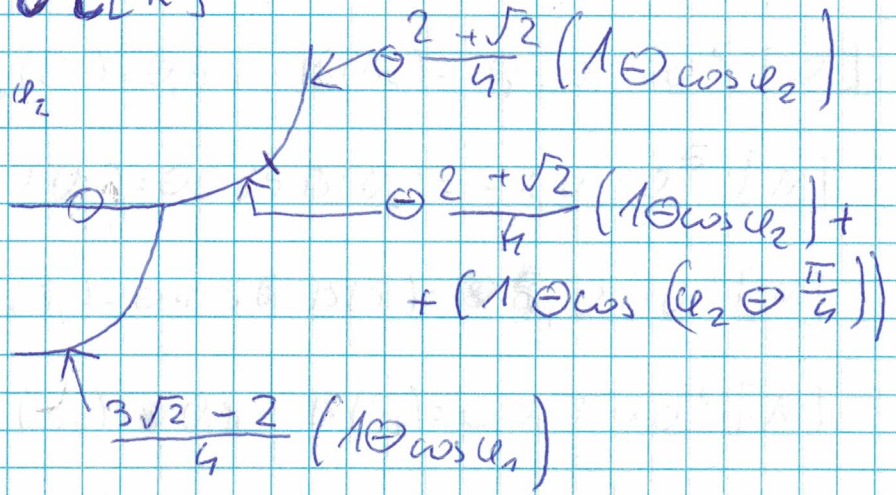 φ₂
⊖ (2 + √2)/4 (1 ⊖ cos φ₂)
⊖
⊖ (2 + √2)/4 (1 ⊖ cos φ₂) +
+ (1 ⊖ cos (φ₂ ⊖ π/4))
(3√2 - 2)/4 (1 ⊖ cos φ₁)